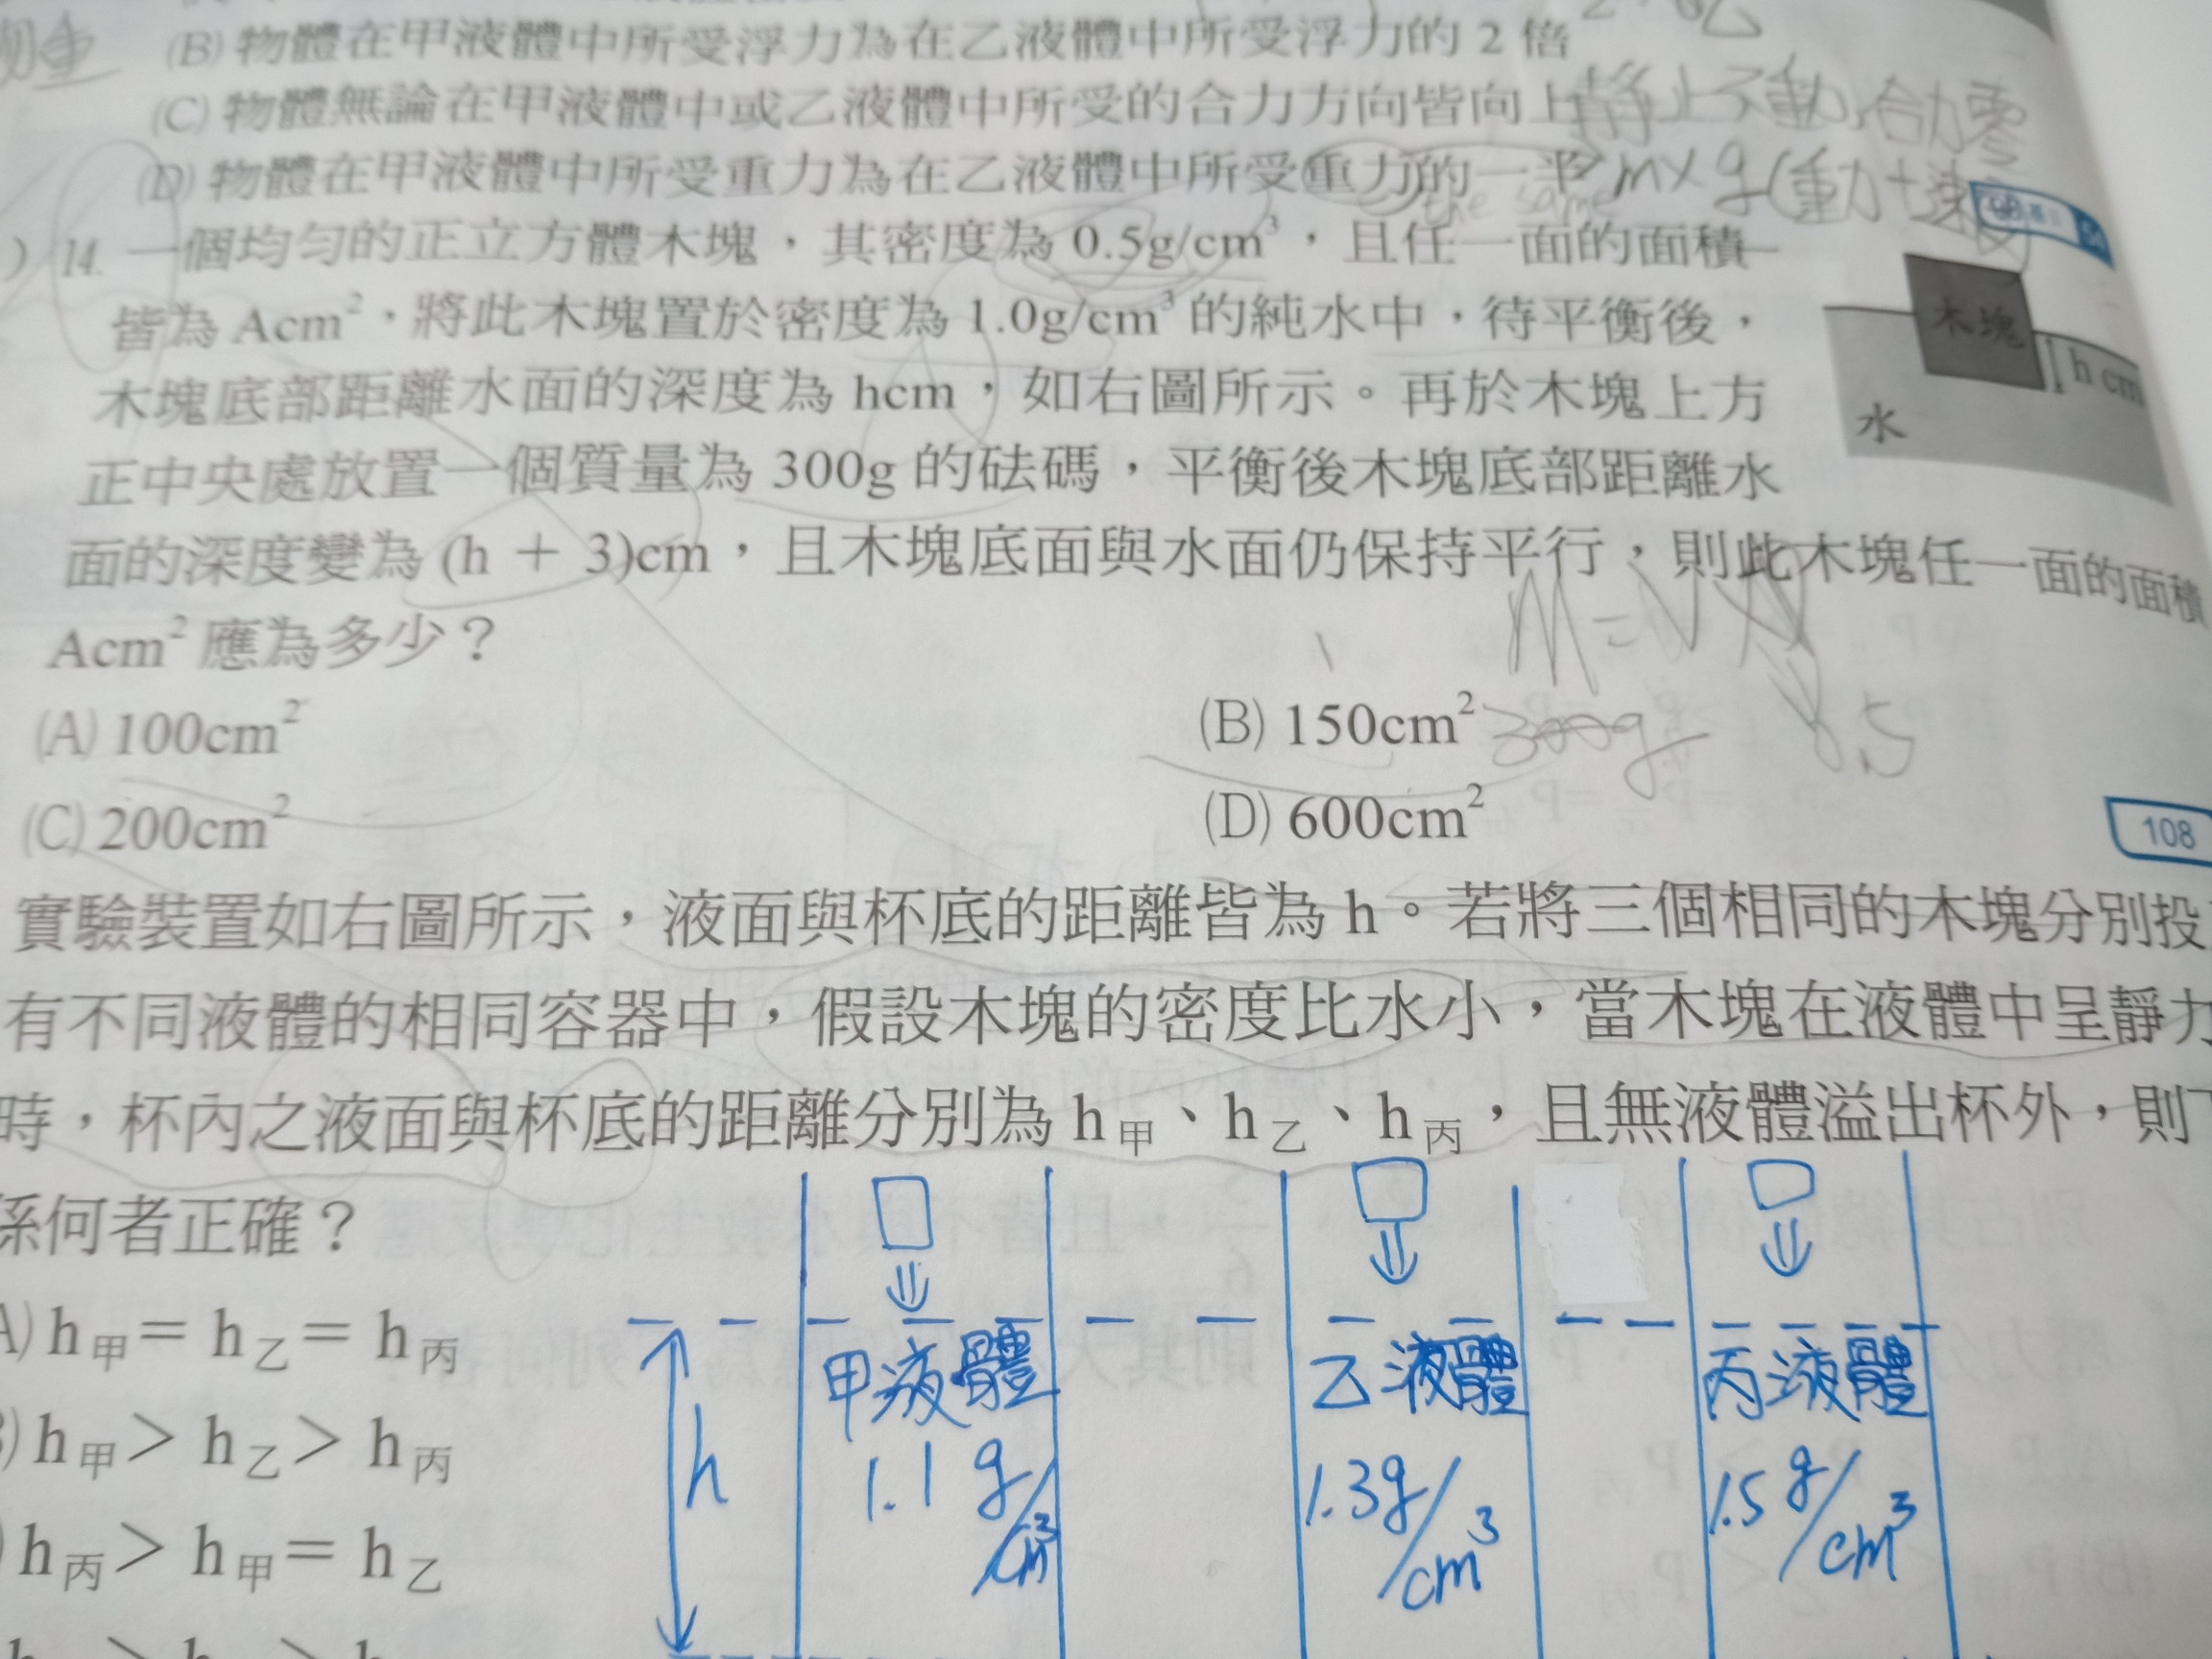 (B) 物體在甲液體中所受浮力為在乙液體中所受浮力的 2 倍
(C) 物體無論在甲液體中或乙液體中所受的合力方向皆向上 靜止不動，合力零
(D) 物體在甲液體中所受重力為在乙液體中所受重力的一半 m×g
the same
) 14. 一個均勻的正立方體木塊，其密度為 0.5g/cm³，且任一面的面積
皆為 Acm²，將此木塊置於密度為 1.0g/cm³ 的純水中，待平衡後，
木塊底部距離水面的深度為 hcm，如右圖所示。再於木塊上方
正中央處放置一個質量為 300g 的砝碼，平衡後木塊底部距離水
面的深度變為 (h + 3)cm，且木塊底面與水面仍保持平行，則此木塊任一面的面積
Acm² 應為多少？
木塊
h cm
水
M=V
(A) 100cm²
(B) 150cm² 300g
(C) 200cm²
(D) 600cm²
108
實驗裝置如右圖所示，液面與杯底的距離皆為 h。若將三個相同的木塊分別投
有不同液體的相同容器中，假設木塊的密度比水小，當木塊在液體中呈靜力
時，杯內之液面與杯底的距離分別為 h甲、h乙、h丙，且無液體溢出杯外，則
係何者正確？
A) h甲＝ h乙＝ h丙
) h甲＞ h乙＞ h丙
) h丙＞ h甲＝ h乙
h
甲液體
1.1 g/cm³
乙液體
1.3g/cm³
丙液體
1.5 g/cm³